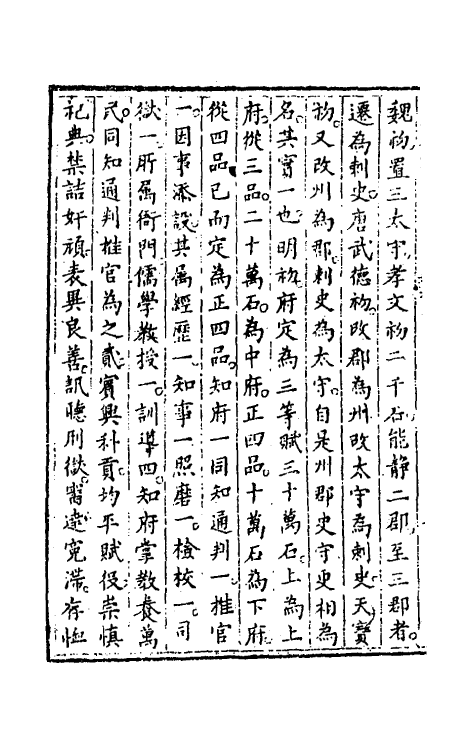 魏初置三太守孝文初二千石能静二郡至三郡者
遷為刺史唐武德初改郡為州改太守為刺史天寶
初又改州為郡刺史為太守自是州郡史守更相為
名其實一也明初府定為三等賦三十萬石上為上
府從三品二十萬石為中府正四品十萬石為下府
從四品已而定為正四品知府一同知通判一推官
一因事添設其属經歷一知事一照磨一檢校一司
獄一所属衙門儒學教授一訓導四知府掌教養萬
民同知通判推官為之貳賓興科貢均平賦役崇慎
祀典禁詰奸頑表異良善訊聽刑獄審達寃滞存恤